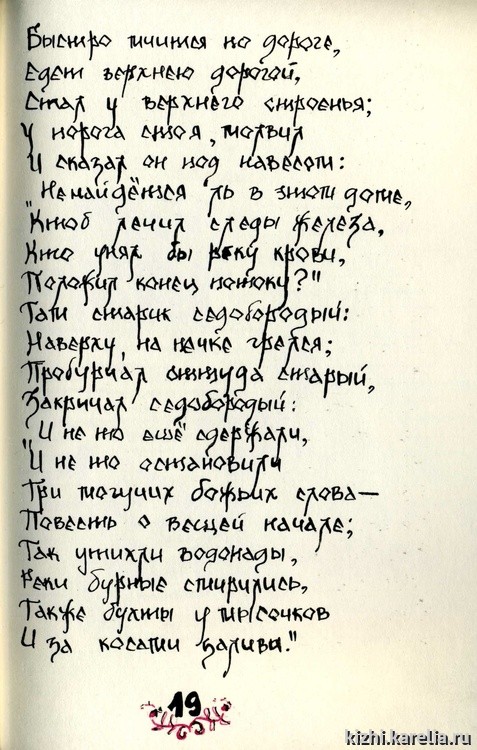 Быстро мчится по дороге,
Едет верхнею дорогой,
Стал у верхнего строенья;
У порога стоя, молвил
И сказал он под навесом:
"Не найдётся ль в этом доме,
Ктоб лечил следы железа,
Кто унял бы реку крови,
Положил конец потоку?"
Там старик седобородый:
Наверху, на печке грелся;
Пробурчал оттуда старый,
Закричал седобородый:
"И не то ещё сдержали,
И не то остановили
Три могучих божьих слова—
Повесть о вещей начале;
Так утихли водопады,
Реки бурные смирились,
Также бухты у мысочков
И за косами заливы."
19
kizhi.karelia.ru